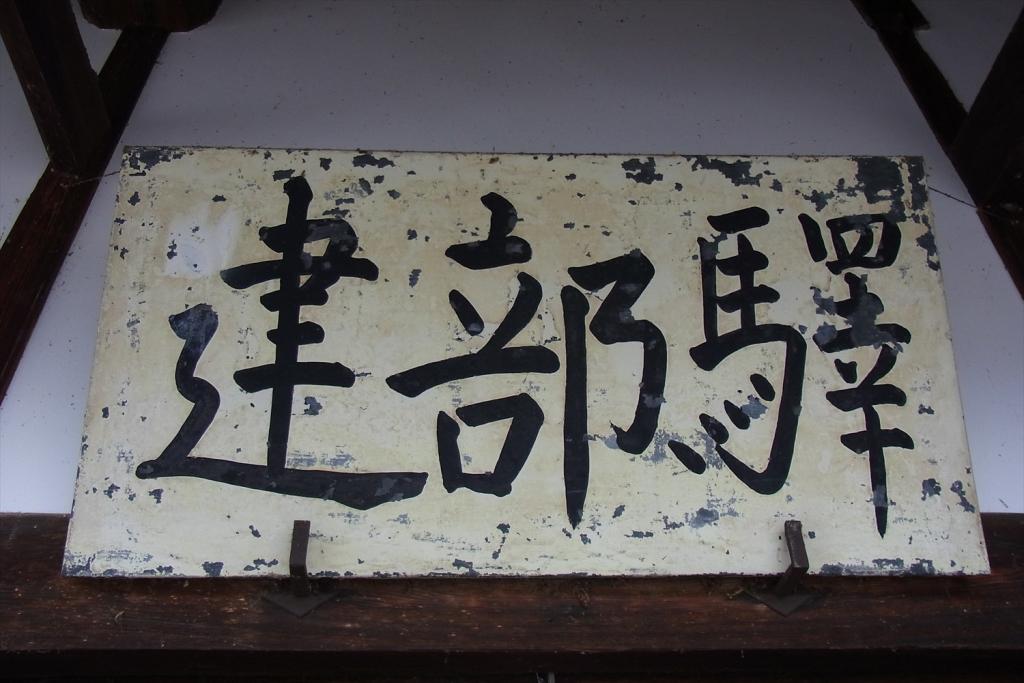 建部驛